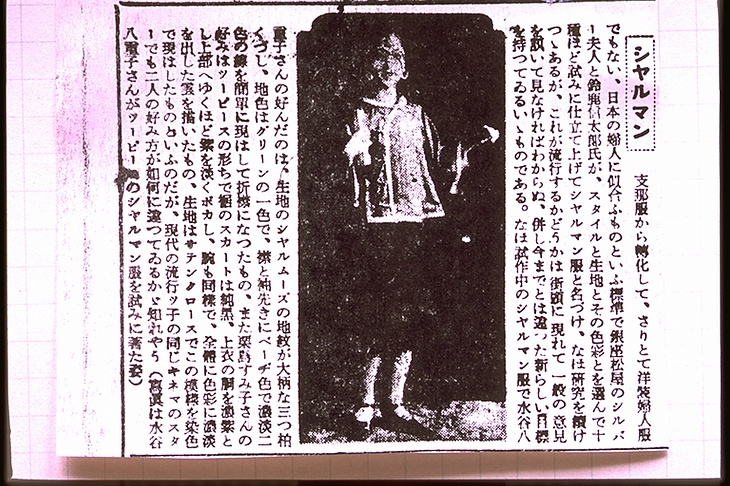 シヤルマン
支那服から轉化して、さりとて洋装婦人服
でもない、日本の婦人に似合ふものといふ標準で銀座松屋のシルバ
ー夫人と鈴鹿信太郎氏が、スタイルと生地とその色彩とを選んで十
種ほど試みに仕立て上げてシヤルマン服と名づけ、なほ研究を續け
つゝあるが、これが流行するかどうかは街頭に現れて一般の意見
を訊いて見なければわからぬ、併し今までとは違つた新らしい目標
を持つてゐるいゝものである。なほ試作中のシヤルマン服で水谷八
重子さんの好んだのは、生地のシヤルムーズの地紋が大柄な三つ柏
くづし、地色はグリーンの一色で、襟と袖先きにベーヂ色で濃淡二
色の線を簡單に現はして折襟になつたもの、また栗島すみ子さんの
好みはツーピースの形ちで裾のスカートは純黒、上衣の胴を濃紫と
し上部へゆくほど紫を淡くボカし、腕も同樣で、全體に色彩に濃淡
を出した雲を描いたもの、生地はサテンクロースでこの模樣を染色
で現はしたものといふのだが、現代の流行ッ子の同じキネマのスタ
ーでも二人の好み方が如何に違つてゐるかゞ知れやう（寫眞は水谷
八重子さんがツーピースのシヤルマン服を試みに著た姿）